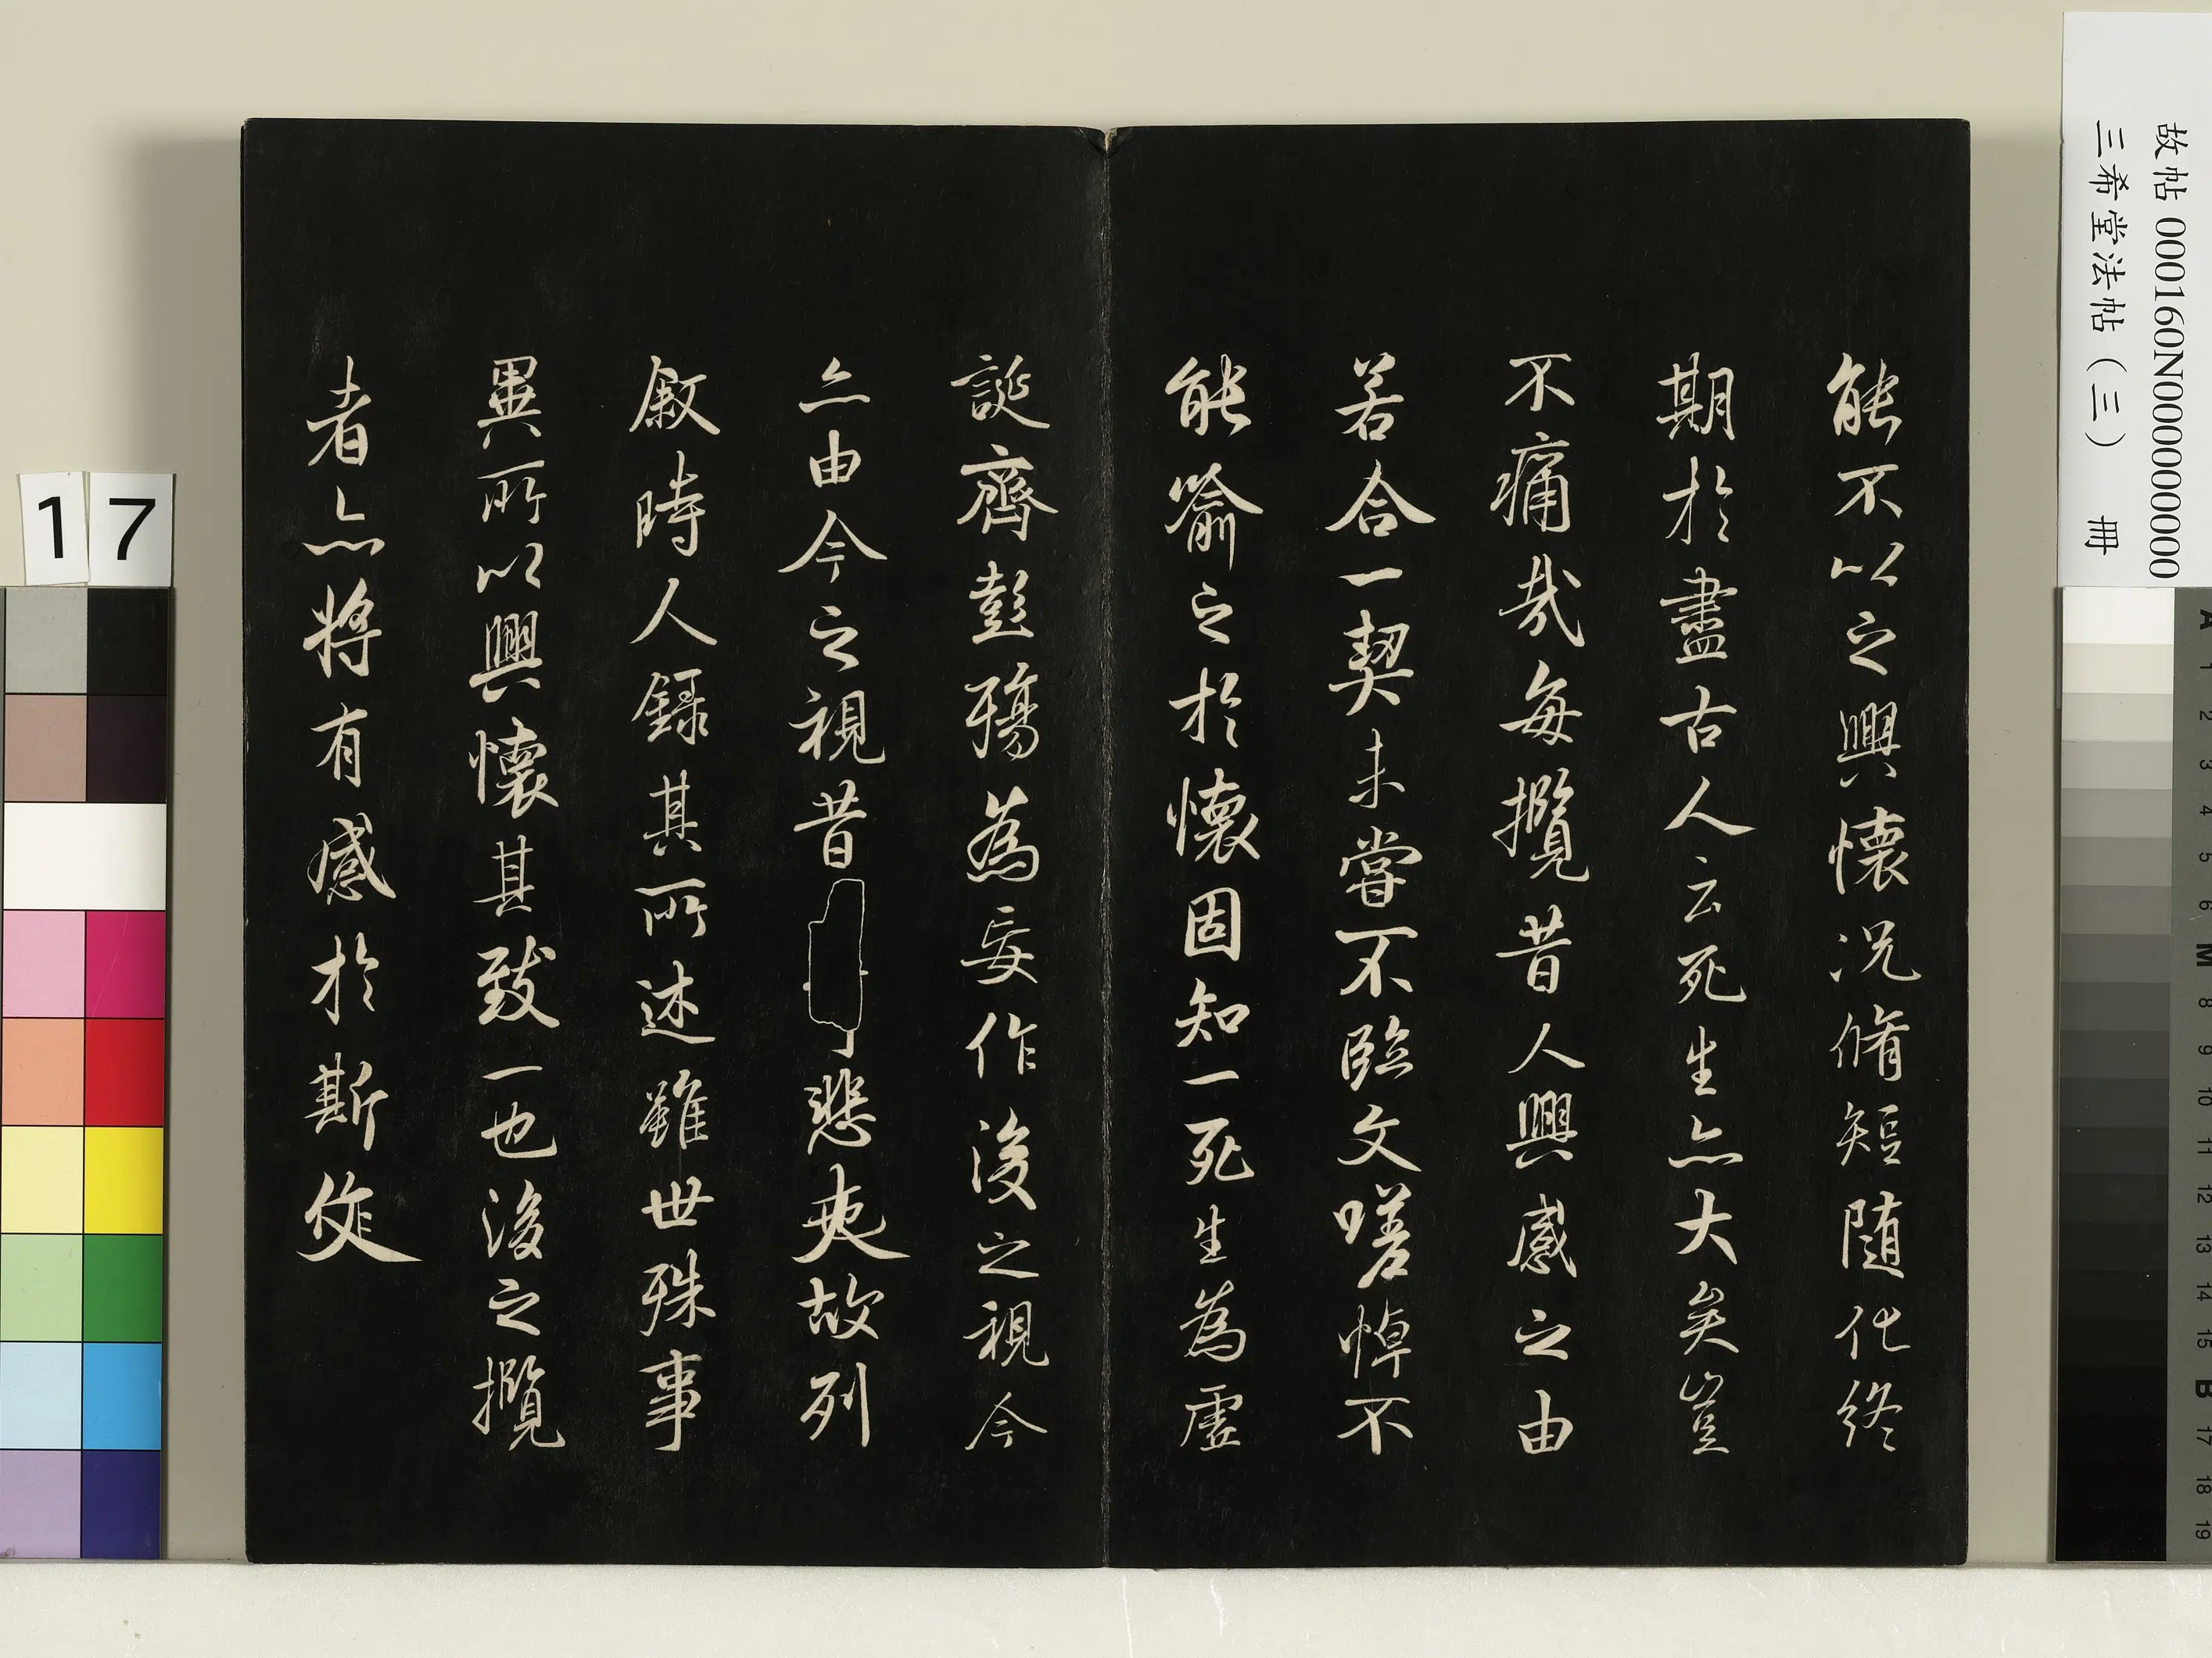 能不以之興懷况脩短随化終
期於盡古人云死生亦大矣豈
不痛哉每攬昔人興感之由
若合一契未嘗不臨文嗟悼不
能喻之於懷固知一死生為虛
誕齊彭殤為妄作後之視今
亦由今之視昔悲夫故列
敘時人錄其所述雖世殊事
異所以興懷其致一也後之攬
者亦將有感於斯作
故帖 000160N000000000
三希堂法帖（三） 冊
17
A
1
2
3
4
5
6
M
8
9
10
11
12
13
14
15
B
17
18
19